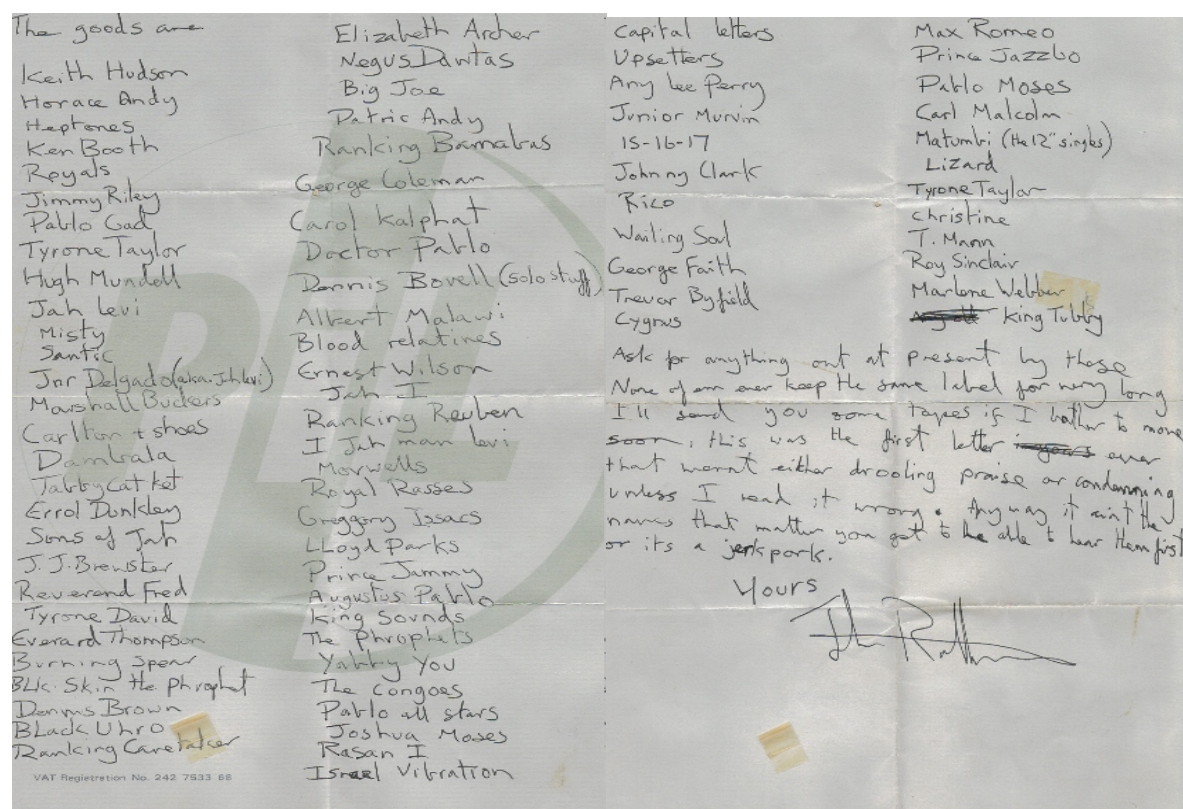 The goods are
Keith Hudson
Horace Andy
Heptones
Ken Booth
Royals
Jimmy Riley
Pablo Gad
Tyrone Taylor
Hugh Mundell
Jah Levi
Misty
Santic
Jnr Delgado (aka. Jah levi)
Marshall Buckers
Carlton + shoes
Dambala
Tabby Cat ket
Errol Dunkley
Sons of Jah
J. J. Brewster
Reverend Fred
Tyrone David
Everard Thompson
Burning spear
BLK. Skin the Phrophet
Dennis Brown
BLack Uhro
Ranking Caretaker
VAT Registration No. 242 7533 68
Elizabeth Archer
Negus Dawtas
Big Joe
Patric Andy
Ranking Barnabas
George Coleman
Carol Kalphat
Doctor Pablo
Dennis Bovell (solo stuff)
Albert Malawi
Blood relatines
Ernest Wilson
Jah I
Ranking Reuben
I Jah man levi
Morwells
Royal Rasses
Greggory Issacs
LLoyd Parks
Prince Jammy
Augustus Pablo
King Sounds
The Phrophets
Yabby You
The Congoes
Pablo all stars
Joshua Moses
Rasan I
Israel Vibration
PIL
Capital letters
Upsetters
Any Lee Perry
Junior Murvin
15-16-17
Johnny Clark
Rico
Wailing Soul
George Faith
Trevor Byfield
Cygnus
Max Romeo
Prince Jazzbo
Pablo Moses
Carl Malcolm
Matumbi (the 12" singles)
Lizard
Tyrone Taylor
Christine
T. Mann
Roy Sinclair
Marlene Webber
King Tubby
Ask for anything out at present by those
None of em ever keep the same label for very long
I'll send you some tapes if I bother to move
soon, this was the first letter ever
that wornt either drooling praise or condemning
unless I read it wrong. Anyway it aint the
names that matter you got to be able to hear them first
or its a jerk pork.
Yours